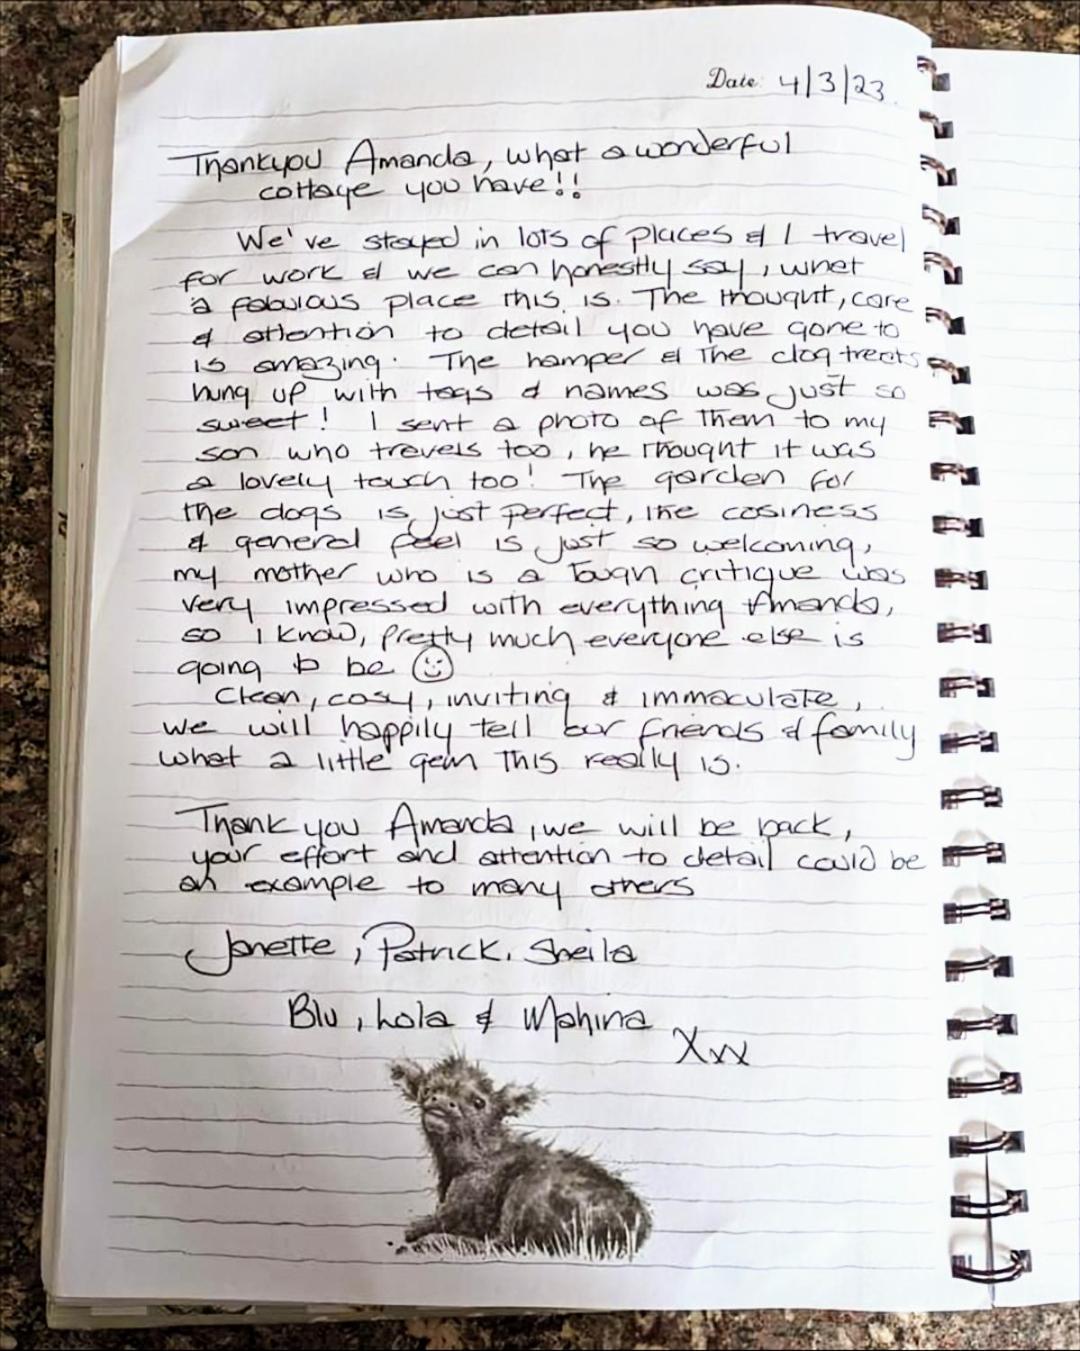 Date: 4/3/23.
Thankyou Amanda, what a wonderful
cottage you have!!
We've stayed in lots of places & I travel
for work & we can honestly say, what
a fabulous place this is. The thought, care
& attention to detail you have gone to
is amazing. The hamper & The dog treats
hung up with tags & names was just so
sweet! I sent a photo of them to my
son who travels too, he thought it was
a lovely touch too! The garden for
the dogs is just perfect, the cosiness
& general feel is just so welcoming,
my mother who is a tough critique was
very impressed with everything Amanda,
so I know, pretty much everyone else is
going to be
Clean, cosy, inviting & immaculate,
we will happily tell our friends & family
what a little gem this really is.
Thank you Amanda, we will be back,
your effort and attention to detail could be
an example to many others
Janette, Patrick, Sheila
Blu, Lola & Mahina
Xxx